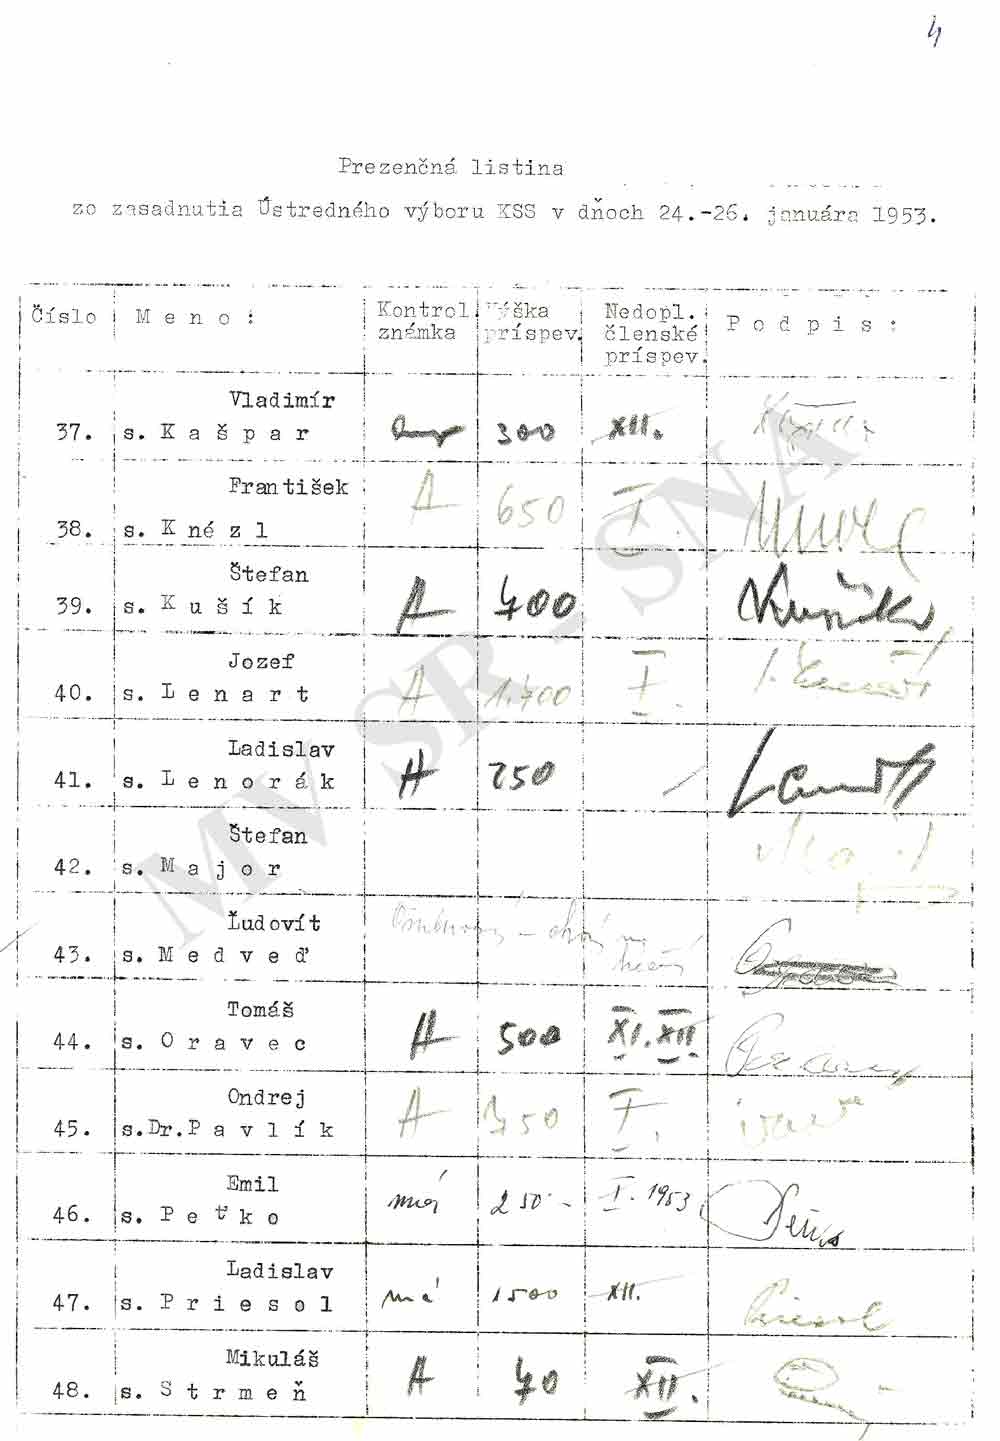 4
Prezenčná listina
zo zasadnutia Ústredného výboru KSS v dňoch 24.-26. januára 1953.
Číslo M e n o : Kontrol. známka Výška príspev. Nedopl. členské príspev. P o d p i s :
Vladimír
37. s. K a š p a r 300 XII.
František
38. s. K n é z l A 650 I.
Štefan
39. s. K u š í k A 400 Kušík
Jozef
40. s. L e n a r t A 1.400 I.
Ladislav
41. s. L e n o r á k A 250
Štefan
42. s. M a j o r Major
Ľudovít
43. s. M e d v e ď
Tomáš
44. s. O r a v e c A 500 XI. XII. Oravec
Ondrej
45. s.Dr.P a v l í k A 750 I.
Emil
46. s. P e ť k o má 250.- I. 1953
Ladislav
47. s. P r i e s o l má 1500 XII. Priesol
Mikuláš
48. s. S t r m e ň A 70 XII.
MV SR - SNA